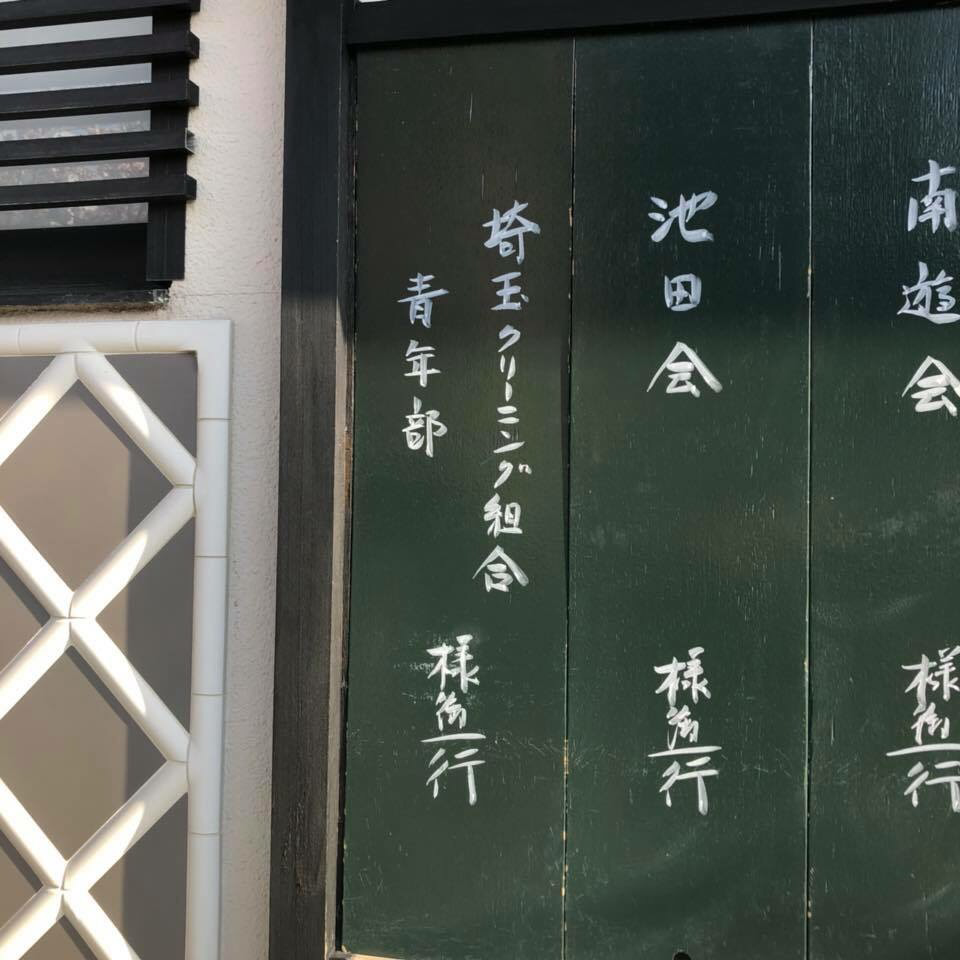 南遊会
様御一行
池田会
様御一行
埼玉クリーニング組合
青年部
様御一行